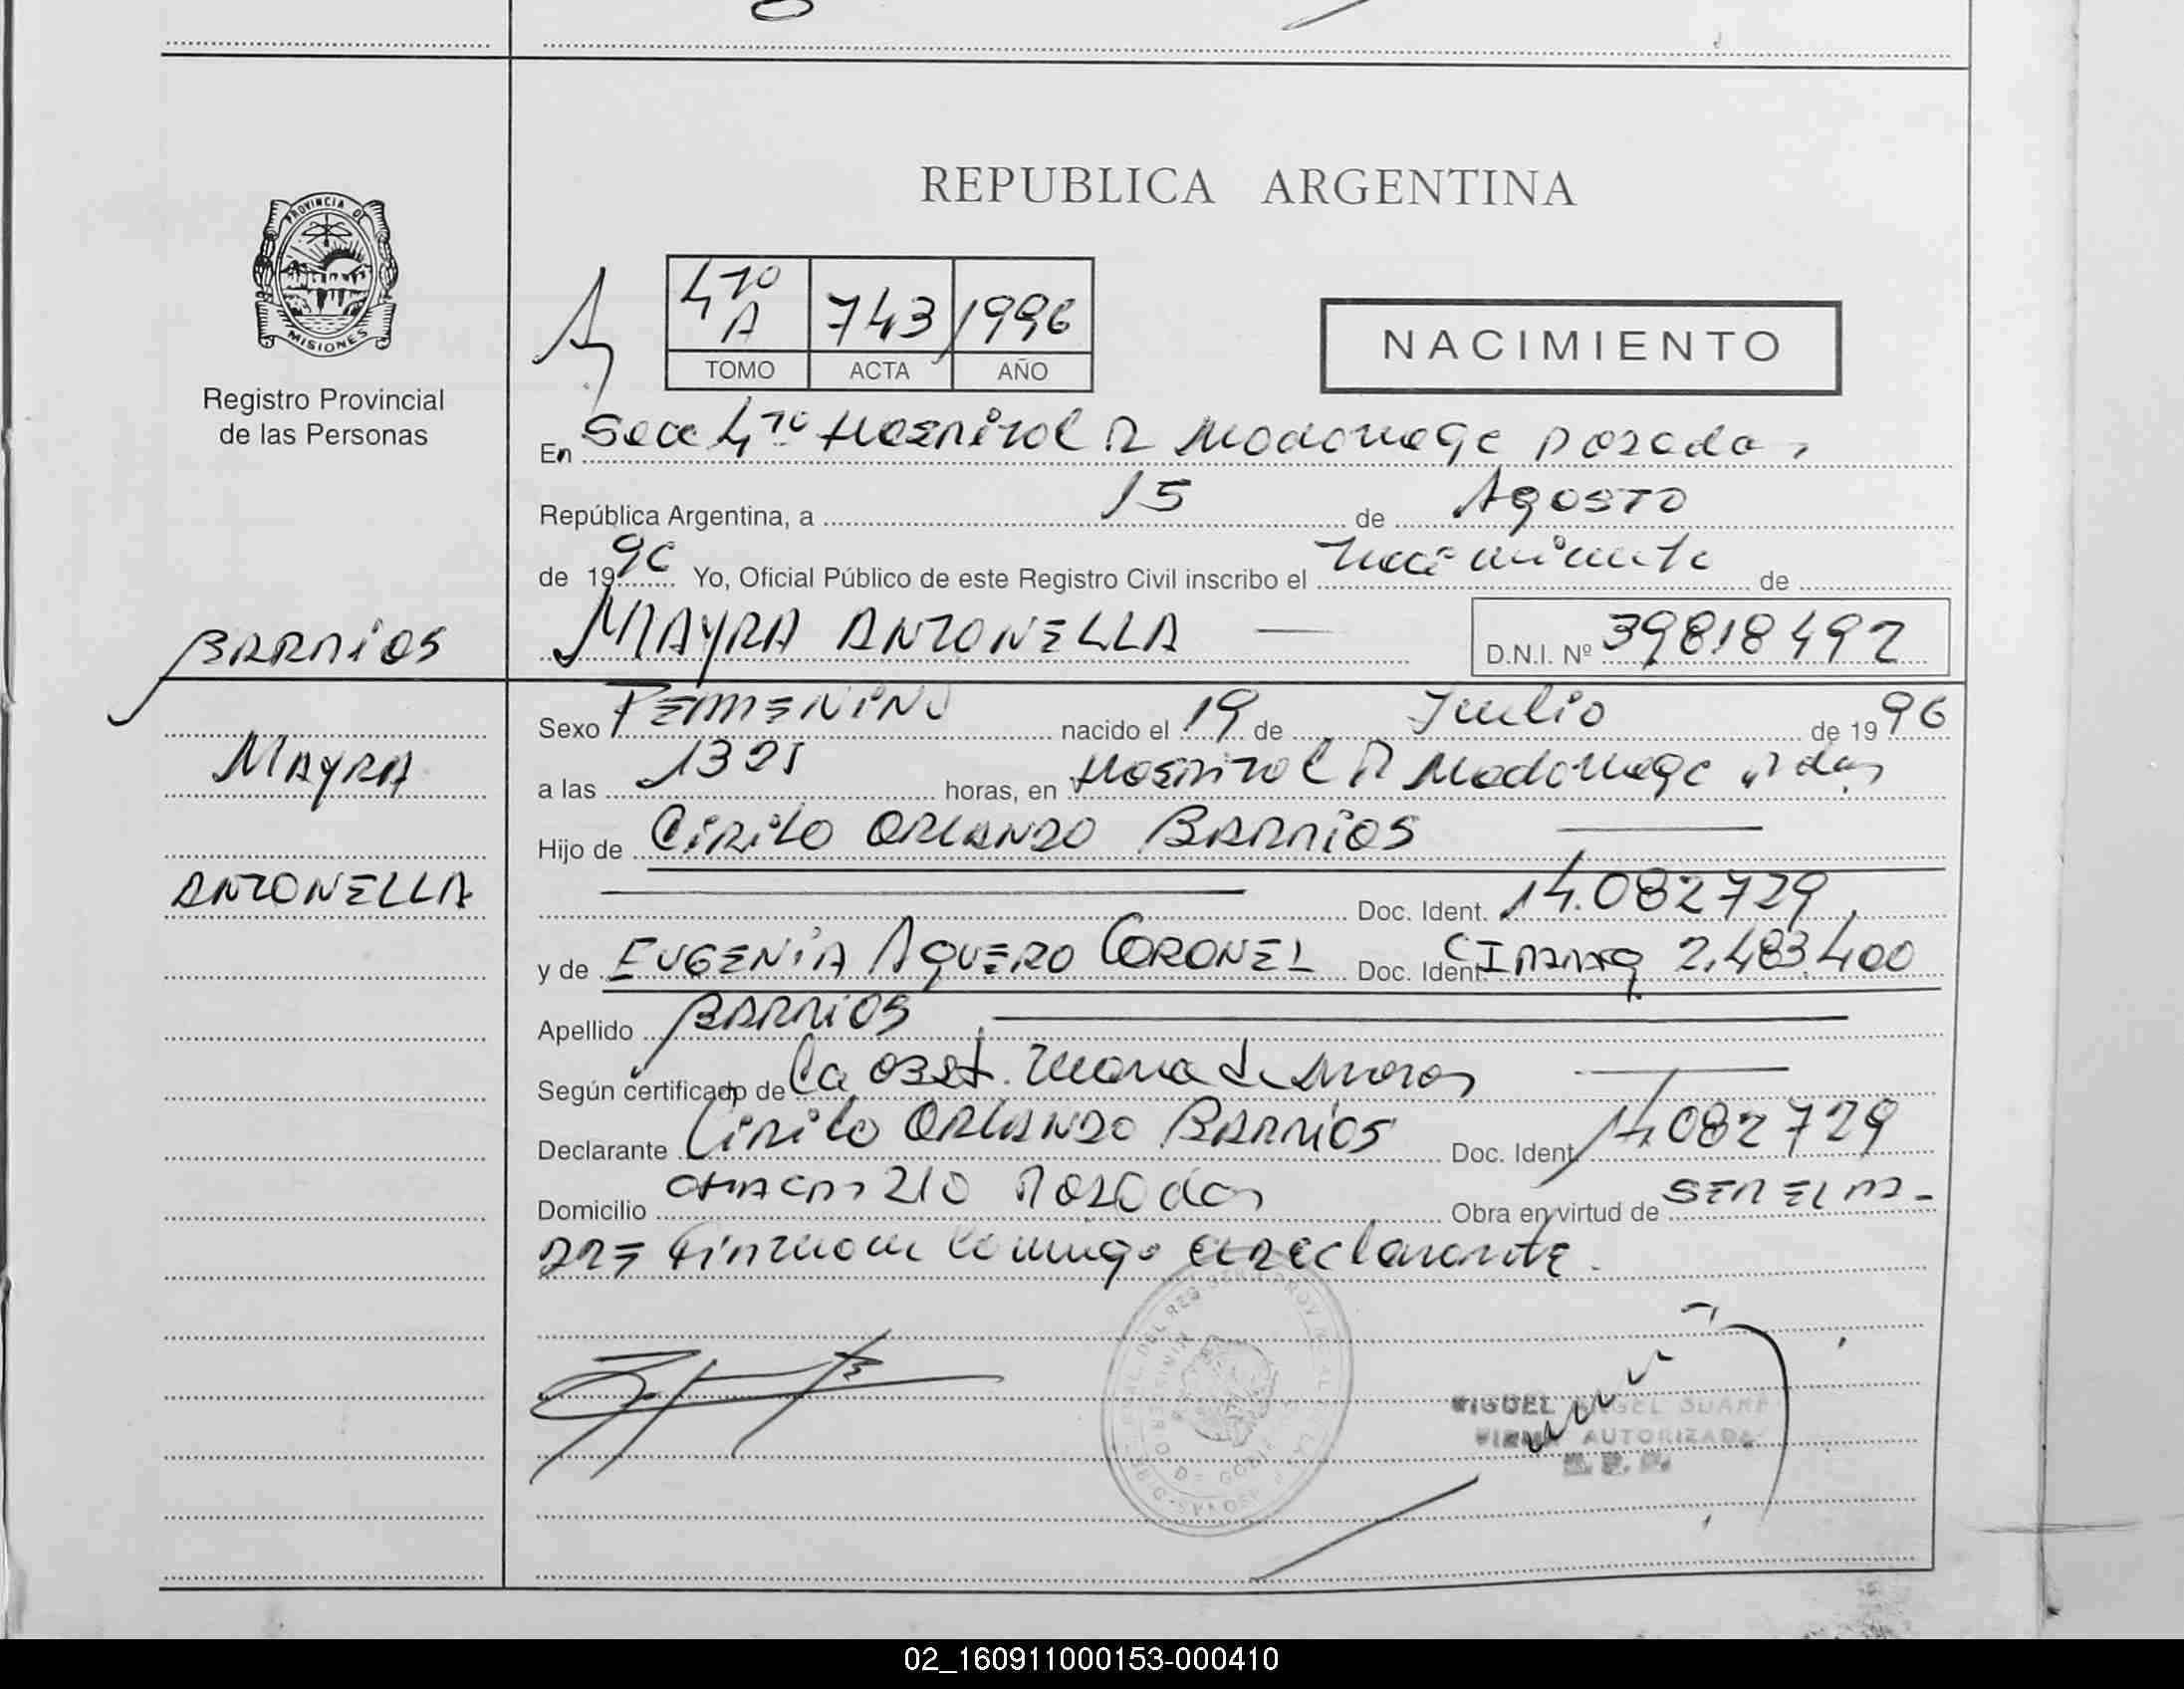 REPUBLICA ARGENTINA
PROVINCIA DE
MISIONES
Registro Provincial
de las Personas
4to A 743 1996
TOMO ACTA AÑO
NACIMIENTO
En Secc 4to Hospital R Madariaga Posadas
República Argentina, a 15 de Agosto
de 1996 Yo, Oficial Público de este Registro Civil inscribo el nacimiento de
BARRIOS
MAYRA ANTONELLA — D.N.I. Nº 39818492
MAYRA
ANTONELLA
Sexo FEMENINO nacido el 19 de Julio de 1996
a las 1325 horas, en Hospital R Madariaga Pdas
Hijo de CIRILO ORLANDO BARRIOS
Doc. Ident. 14.082729
y de EUGENIA AGUERO CORONEL Doc. Ident CI 2.483.400
Apellido BARRIOS
Según certificado de La Obst.
Declarante CIRILO ORLANDO BARRIOS Doc. Ident. 14.082729
Domicilio 210 Posadas Obra en virtud de SER EL PA-
DRE Firman conmigo el declarante.
MIGUEL ANGEL SUARE
FIRMA AUTORIZADA
02_160911000153-000410